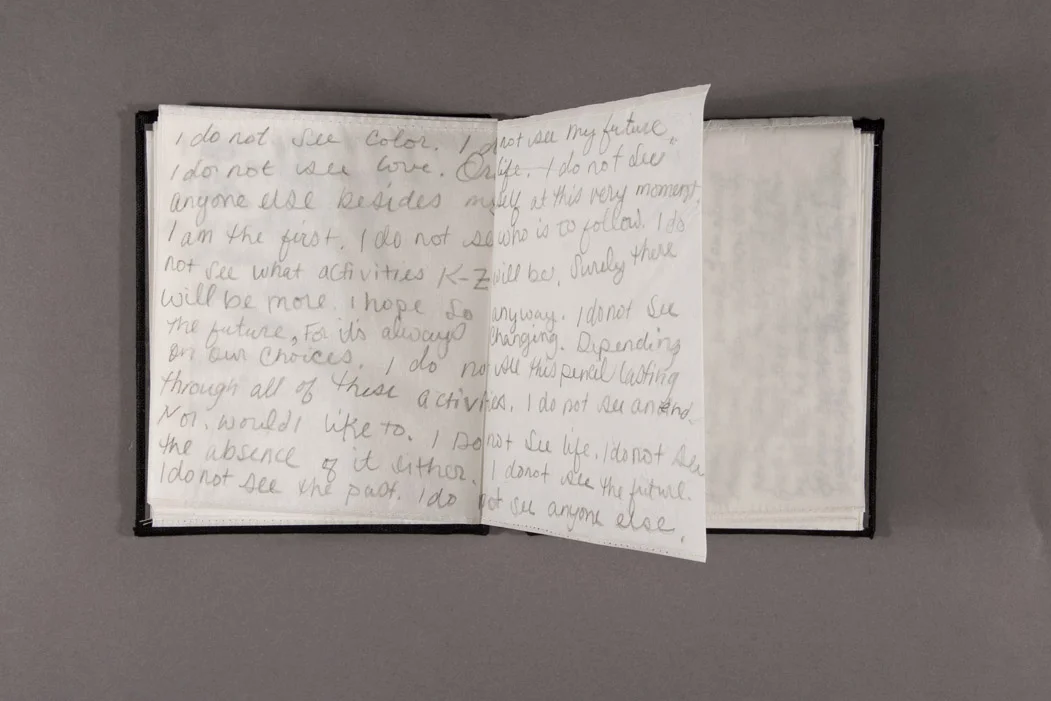 I do not see color. I do not see my future.
I do not see love. Or life. I do not see
anyone else besides myself at this very moment.
I am the first. I do not see who is to follow. I do
not see what activities K-Z will be. Surely there
will be more. I hope so anyway. I do not see
the future, For it's always changing. Depending
on our choices. I do not see this pencil lasting
through all of these activities. I do not see an end.
Nor. would I like to. I do not see life. I do not see
the absence of it either. I do not see the future.
I do not see the past. I do not see anyone else.